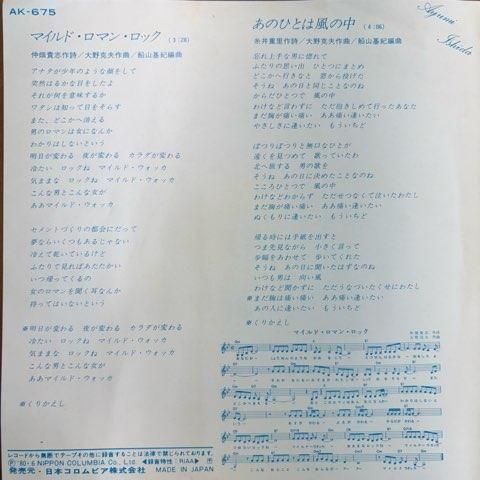 AK-675
マイルド・ロマン・ロック (3:28)
仲畑貴志作詩／大野克夫作曲／船山基紀編曲
アナタが少年のような顔をして
突然はるかな目をしたよ
それが何を意味するか
ワタシは知って目をそらす
また、どこかへ消える
男のロマンは女になんか
わかりはしないという
明日が変わる 夜が変わる カラダが変わる
冷たい ロックね マイルド・ウォッカ
気ままな ロックね マイルド・ウォッカ
こんな男とこんな女が
ああマイルド・ウォッカ
セメントづくりの都会にだって
夢ならいくつもあるじゃない
冷えて乾いているけど
ふたりで見ればあたたかい
いつ帰ってくるの
女のロマンを聞く耳なんか
持ってはいないという
※明日が変わる 夜が変わる カラダが変わる
冷たい ロックね マイルド・ウォッカ
気ままな ロックね マイルド・ウォッカ
こんな男とこんな女が
ああマイルド・ウォッカ
※くりかえし
あのひとは風の中 (4:06)
糸井重里作詩／大野克夫作曲／船山基紀編曲
Ayumi Ishida
忘れ上手な男に惚れて
ふたりの思い出 ひとつにまとめ
どこかへ行きなと 窓から投げた
そうね あの日と同じことなのね
からだひとつで 風の中
わけなど言わずに ただ抱きしめて行ったあなた
まだ胸が痛い痛い ああ痛い逢いたい
やさしさに逢いたい もういちど
ぽつりぽつりと無口なひとが
遠くを見つめて 歌っていたわ
北へ旅する 男の歌を
そうね あの日に決めたことなのね
こころひとつで 風の中
わけなどわからず ただせつなくて泣いたわたし
まだ胸が痛い痛い ああ痛い逢いたい
ぬくもりに逢いたい もういちど
帰る時には手紙を出すと
つま先見ながら 小さく言って
歩幅をあわせて 歩いてくれた
そうね あの日に聞いたはずなのね
いつも男は 向い風
わけなど聞かずに ただうなづいたくせにわたし
※まだ胸が痛い痛い ああ痛い逢いたい
あの人に逢いたい もういちど
※くりかえし
マイルド・ロマン・ロック
レコードから無断でテープその他に録音することは法律で禁じられております。
Ⓟ'80・6 NIPPON COLUMBIA Co., Ltd. ◀録音特性：RIAA▶
発売元・日本コロムビア株式会社 MADE IN JAPAN